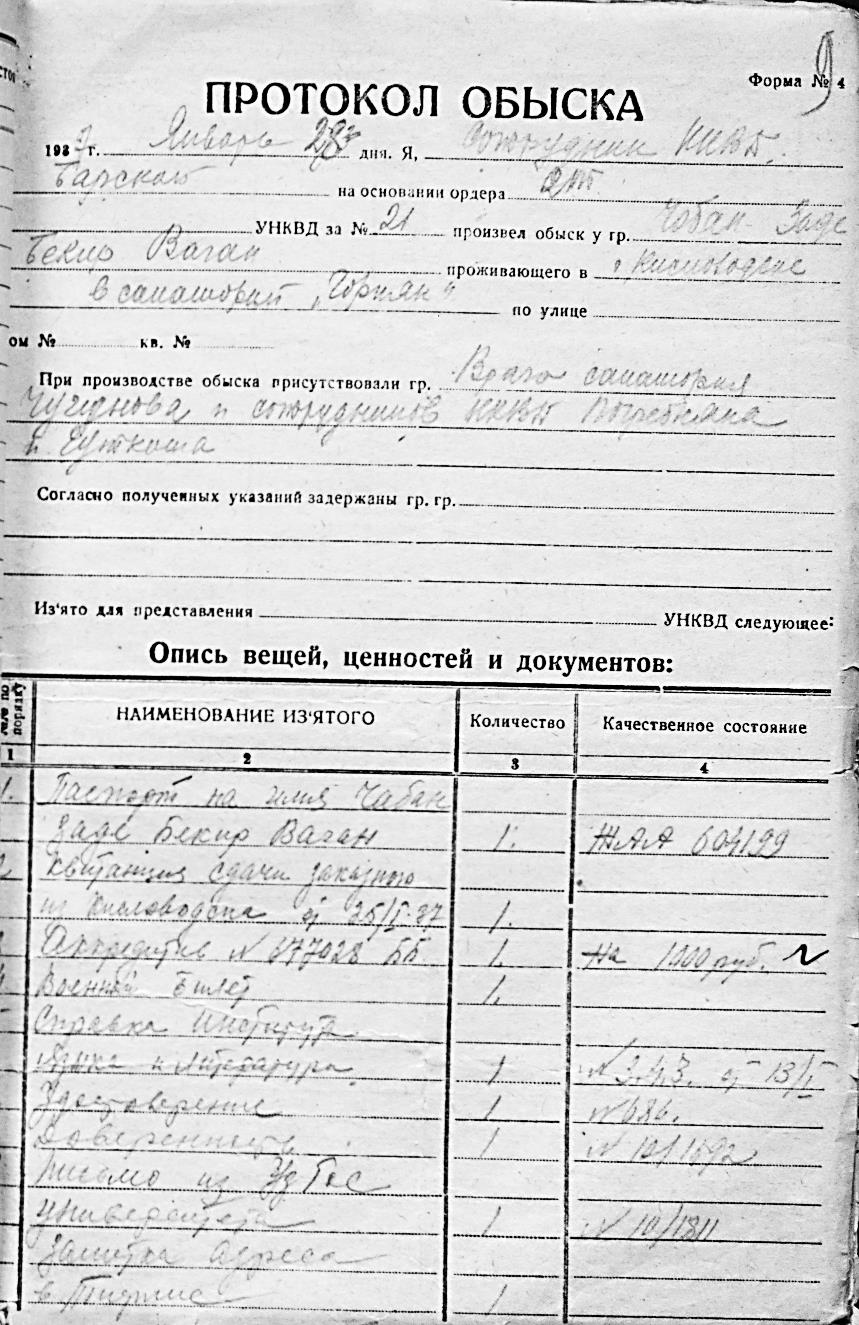 9
Форма № 4
ПРОТОКОЛ ОБЫСКА
1937 г. Январь 28 дня. Я, Сотрудник НКВД
Барской на основании ордера
УНКВД за № 21 произвел обыск у гр. Чобан Заде
Бекир Ваган проживающего в г. Кисловодске
в санатории „Горняк“ по улице
ом № кв. №
При производстве обыска присутствовали гр. Врача санатория
и сотрудников НКВД
и
Согласно полученных указаний задержаны гр. гр.
Из'ято для представления УНКВД следующее:
Опись вещей, ценностей и документов:
№№ по порядку НАИМЕНОВАНИЕ ИЗ'ЯТОГО Количество Качественное состояние
1 2 3 4
1. Паспорт на имя Чабан
Заде Бекир Ваган 1. ЖАА 604199
2 Квитанция сдачи заказного
из Кисловодска от 25/I-37 1.
Аккредитив № 677028 ББ. 1. На 1000 руб.
Военный Билет 1.
Справка Института
Языка и Литература 1 № 343 от 13/I
Удостоверение 1 № 686.
Доверенность 1 № 1211692
Письмо из УзГос
университета 1 № 10/1811
Заметка Адреса
в 1